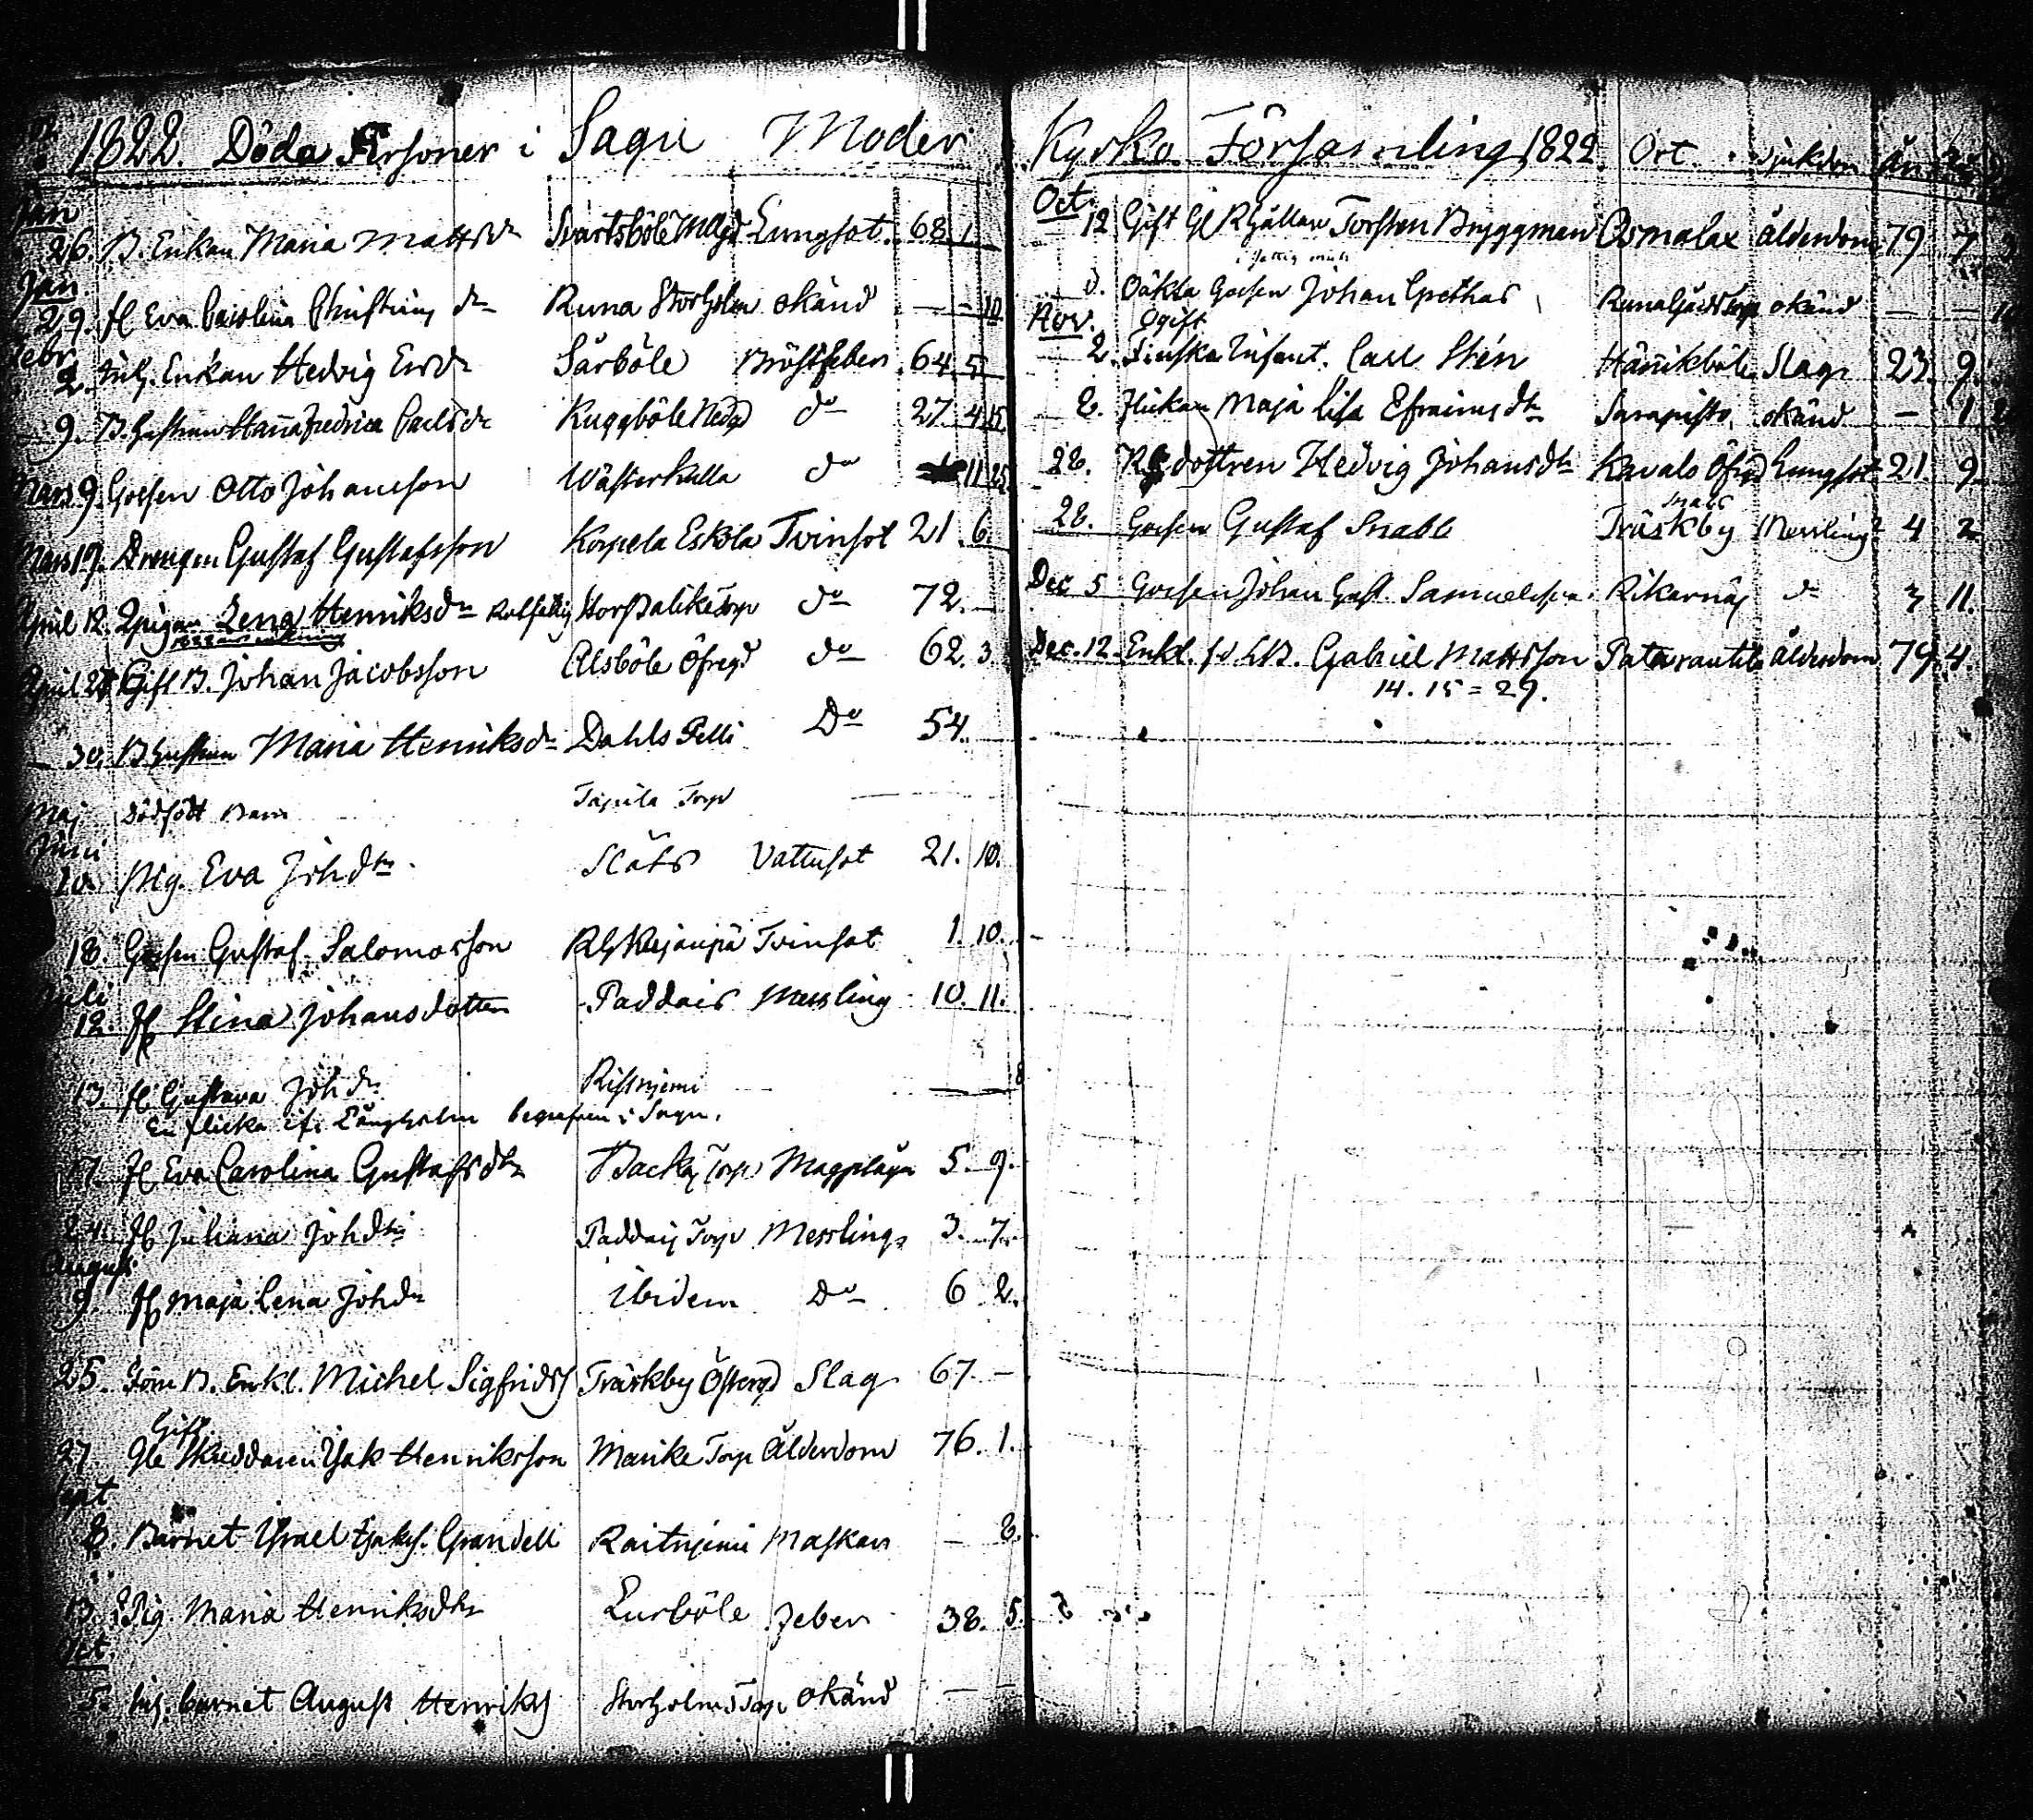 1822. Döda Personer i Sagu Moder
Jan
26. B. Enkan Maria Mattsdr Svartsböle Lungsot. 68 1
Jan.
29. fl Eva Carolina dr Runa Storholm okänd — — 10
Febr
2. Inh. Enkan Hedvig Ersdr Särböle Bröstfeber 64. 5
9. B. Hustrun Hanna Fredrica Carlsdr Kuggböle Nedgd do 27. 4 15
Mars 9. Gossen Otto Johansson Wästerkulla do 11 25
Mars 17. Drengen Gustaf Gustafsson Korpela Eskola Tvinsot 21. 6
April 12. Lena Henriksdr Torp do 72. —
April 28 Gift B. Johan Jacobsson Alsböle Öfregd do 62. 3
— 30. B Hustrun Maria Henriksdr Dahls Pelli Do 54.
Maj Dödfödt Barn Torp —
Juni
10. Pig. Eva Johdtr. Vattusot 21. 10.
18. Gossen Gustaf Salomosson Tvinsot 1. 10.
Juli
12. fl Stina Johansdotter Paddais Messling 10. 11.
13. fl Gustava Johdr Ristniemi — 8
En flicka ifr. Långholm begrafven i Sagu.
17. fl Eva Carolina Gustafsdtr Backa Torp Magplågor 5. 9.
24. fl Juliana Johdtr Paddais Torp Messlings 3. 7.
August
9. fl Maja Lena Johdr ibidem Do 6 2.
25. B. Enkl. Michel Sigfrids Träskby Östergd Slag 67. —
Gift
27. Gle Skreddaren Isak Henriksson Marike Torp Ålderdom 76. 1.
Sept.
8. Barnet Israel Grandell Raitniemi Maskar — 8.
13. Pig. Maria Henriksdtr Lurböle Feber 38. 5.
Oct.
5. Inh. barnet August Henriks Storholms Torp okänd — —
Kyrko Församling 1822. Ort. Sjukdom År
Oct.
12 Gift Gl Torsten Bryggman Osmalax Ålderdom 79 7
d. Oäkta Gossen Johan Grethas Torp okänd — —
Nov. Ogift
2. Finska Infant. Carl Stén Hännikböle Slag 23. 9.
2. Flickan Maja Lisa Efraimsdtr Sarapisto okänd — 1
28. dottren Hedvig Johansdtr Kavalo Öfrgd Lungsot 21. 9.
28. Gossen Gustaf Snabb Träskby Messling 4 2
Dec 5 Gossen Johan Gust. Samuelsson Rikarnäs do 3 11.
Dec. 12. Enkl. Gabriel Mattsson Patarautila Ålderdom 79. 4.
14. 15 = 29.